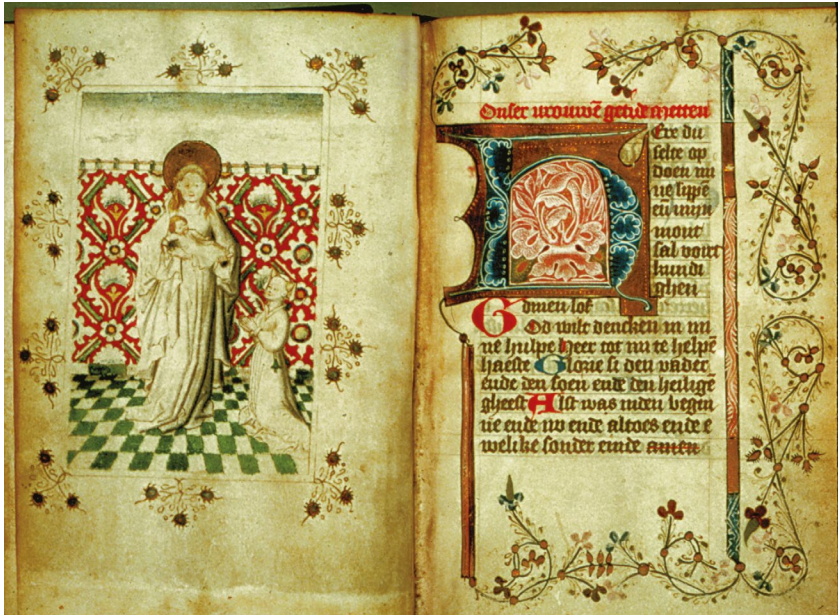 Onser vrouwē getide metten
Ere du
selte op
doen mi
ne lippē
eñ mijn
mont
sal voirt
kundi
ghen
Gdinen lof
God wilt dencken in mi
ne hulpe Heer tot mi te helpē
haeste Glorie si den vader
ende den soen ende den heilige
gheest Alst was inden begen
ne ende nv ende altoes ende e
welike sonder einde amen